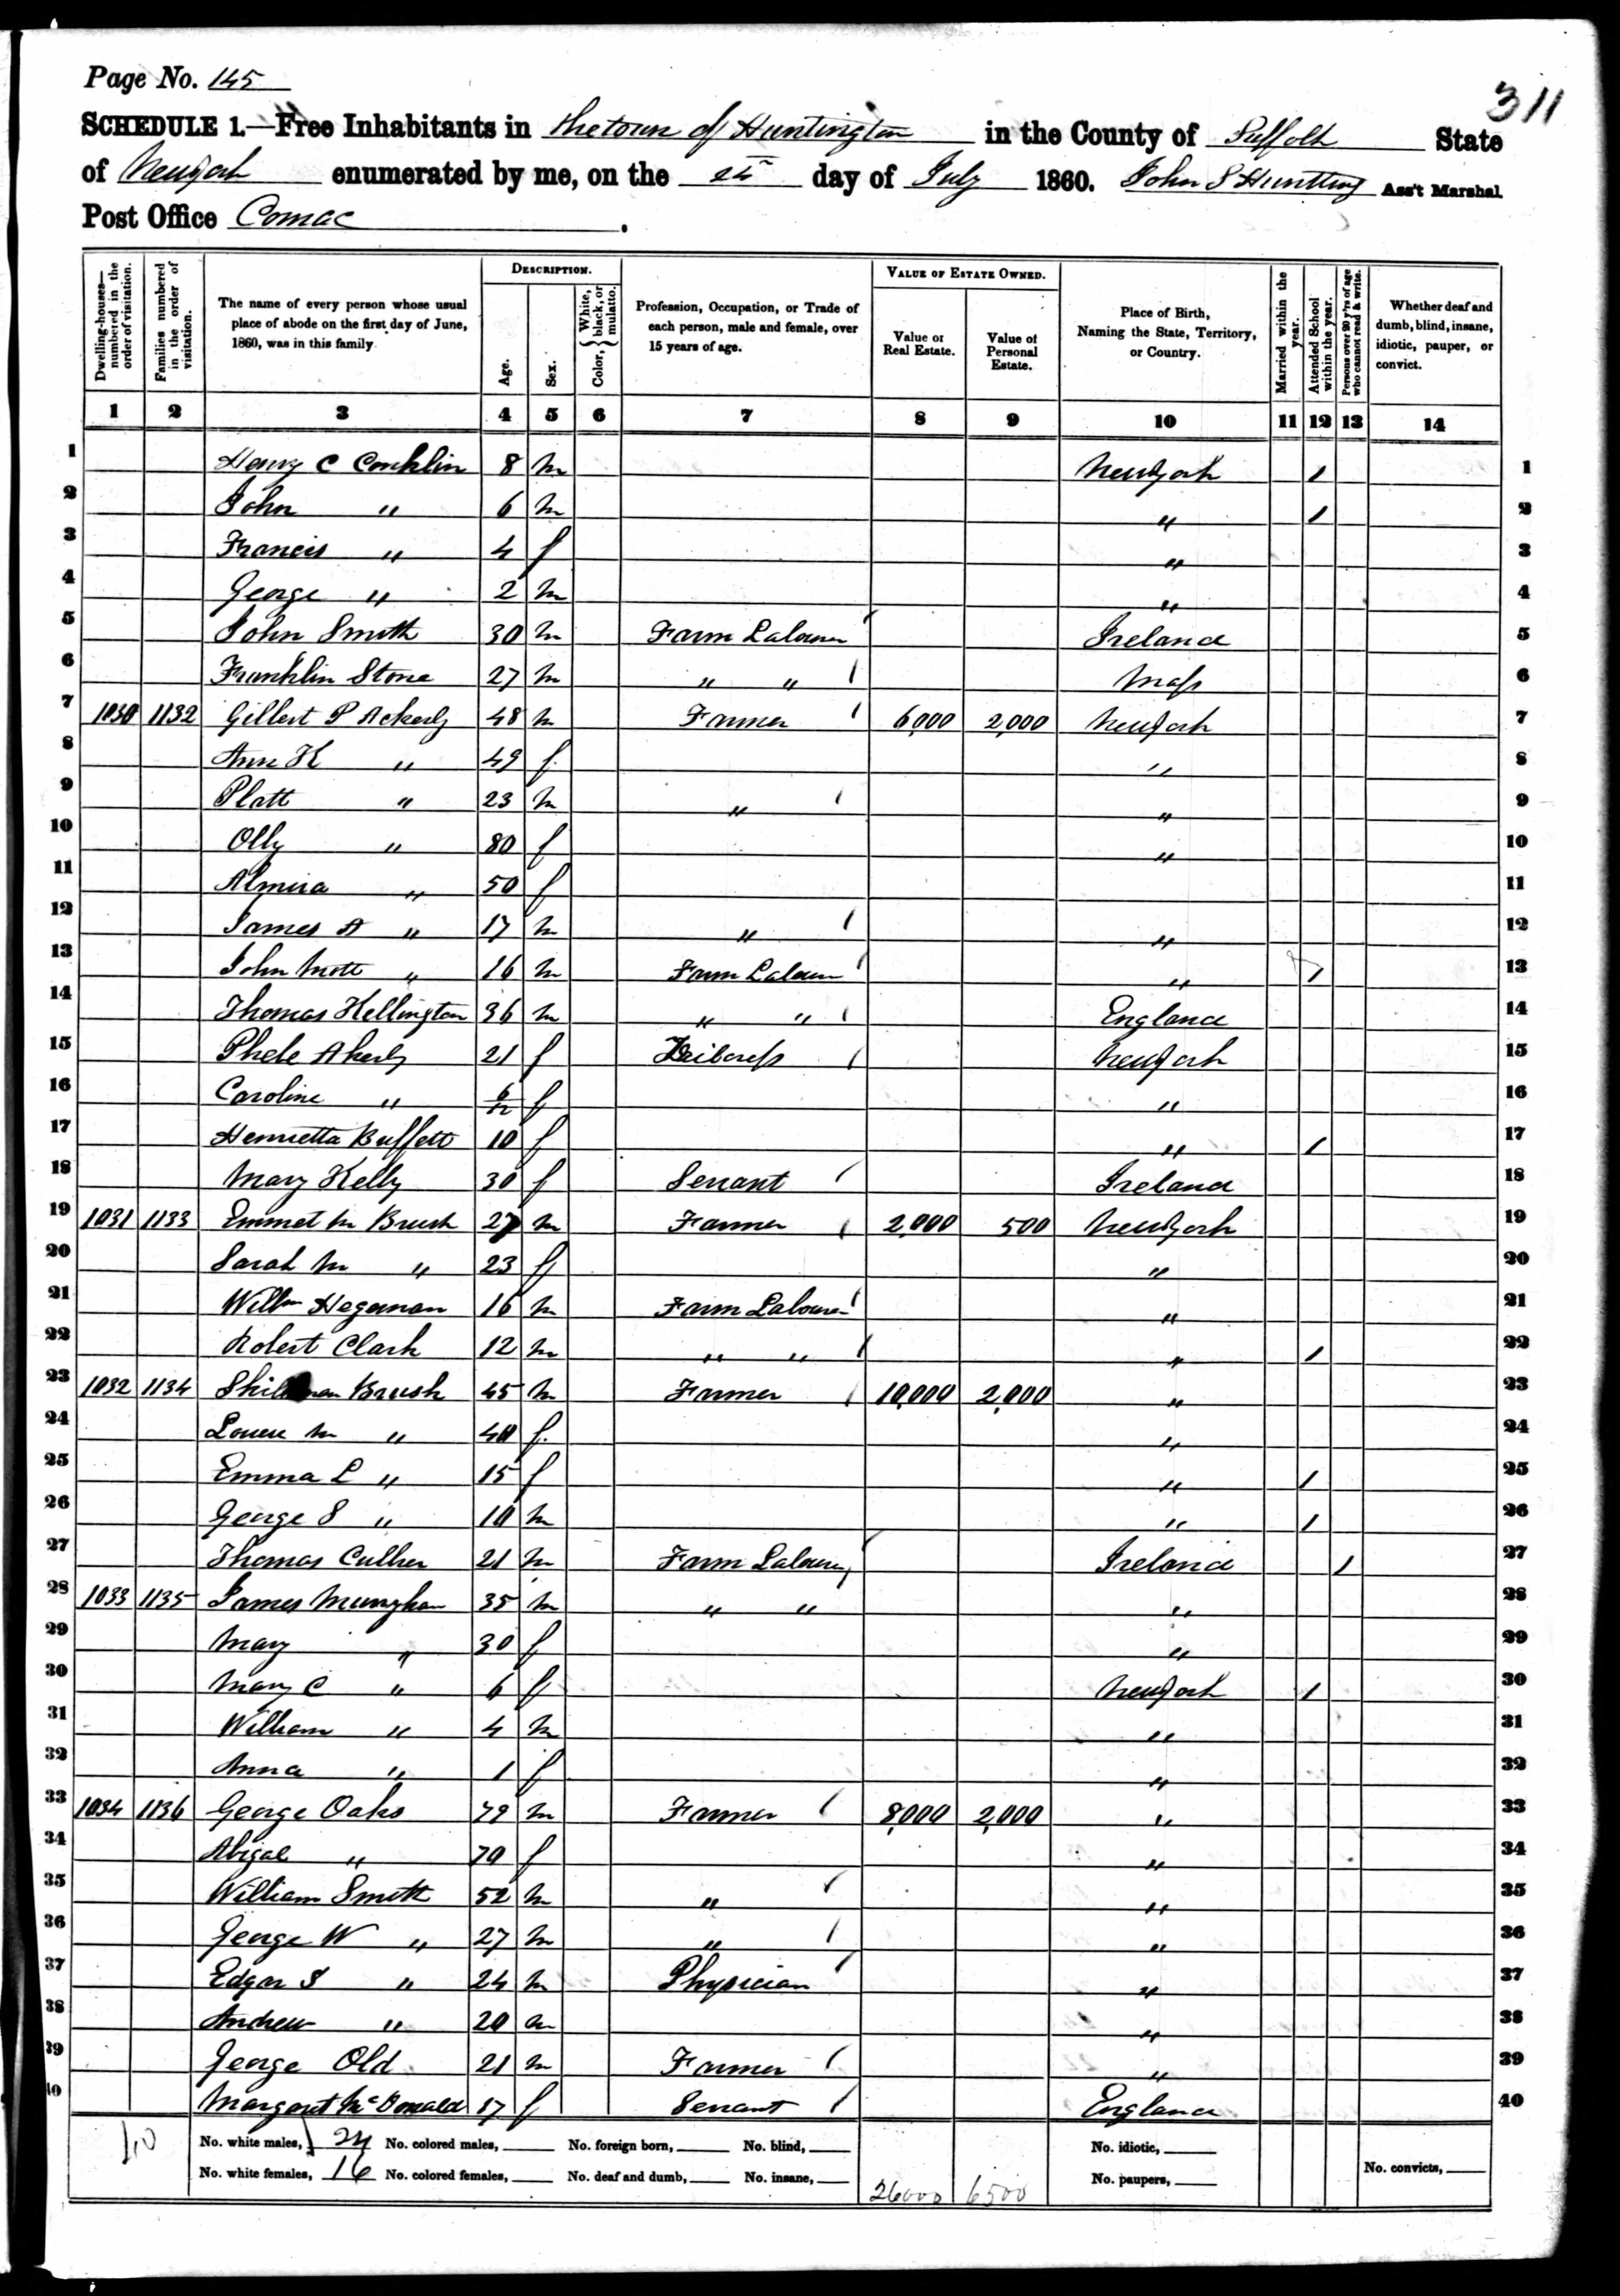 Page No. 145
311
SCHEDULE 1.—Free Inhabitants in the town of Huntington in the County of Suffolk State
of New York enumerated by me, on the day of July 1860. John S Huntting Ass't Marshal.
Post Office Comac.
Dwelling-houses—numbered in the order of visitation.
Families numbered in the order of visitation.
The name of every person whose usual place of abode on the first day of June, 1860, was in this family
DESCRIPTION.
Age.
Sex.
Color, { White, black, or mulatto.
Profession, Occupation, or Trade of each person, male and female, over 15 years of age.
VALUE OF ESTATE OWNED.
Value of Real Estate.
Value of Personal Estate.
Place of Birth, Naming the State, Territory, or Country.
Married within the year.
Attended School within the year.
Persons over 20 y'rs of age who cannot read & write.
Whether deaf and dumb, blind, insane, idiotic, pauper, or convict.
1 2 3 4 5 6 7 8 9 10 11 12 13 14
1 Henry C Conklin 8 m New York / 1
2 John " 6 m " / 2
3 Francis " 4 f " 3
4 George " 2 m " 4
5 John Smith 30 m Farm Labourer / Ireland 5
6 Franklin Stone 27 m " " / Mass 6
7 1030 1132 Gilbert P Ackerly 48 m Farmer / 6,000 2,000 New York 7
8 Ann K " 49 f " 8
9 Platt " 23 m " / " 9
10 Olly " 80 f " 10
11 Almira " 50 f 11
12 James A " 17 m " / " 12
13 John Mott " 16 m Farm Labourer / " / 13
14 Thomas Kellington 36 m " " / England 14
15 Phebe Akerly 21 f / New York 15
16 Caroline " 6/12 f " 16
17 Henrietta Buffett 10 f " / 17
18 Mary Kelly 30 f Servant / Ireland 18
19 1031 1133 Emmet M Brush 27 m Farmer / 2,000 500 New York 19
20 Sarah M " 23 f " 20
21 Willm Hegeman 16 m Farm Labourer / " 21
22 Robert Clark 12 m " " / " / 22
23 1032 1134 Brush 45 m Farmer / 10,000 2,000 " 23
24 M " 40 f " 24
25 Emma L " 15 f " / 25
26 George S " 10 m " / 26
27 Thomas 21 m Farm Labourer / Ireland / 27
28 1033 1135 James 35 m " " " 28
29 Mary " 30 f " 29
30 Mary C " 6 f New York / 30
31 William " 4 m " 31
32 Anna " 1 f " 32
33 1034 1136 George Oaks 79 m Farmer / 8,000 2,000 " 33
34 Abigal " 70 f " 34
35 William Smith 52 m " / " 35
36 George W " 27 m " / " 36
37 Edgar S " 24 m Physician / " 37
38 Andrew " 20 m " 38
39 George Old 21 m Farmer / " 39
40 Margaret McDonald 17 f Servant / England 40
40 No. white males, 24 No. colored males, No. foreign born, No. blind, No. idiotic,
No. white females, 16 No. colored females, No. deaf and dumb, No. insane, 26000 6500 No. paupers, No. convicts,